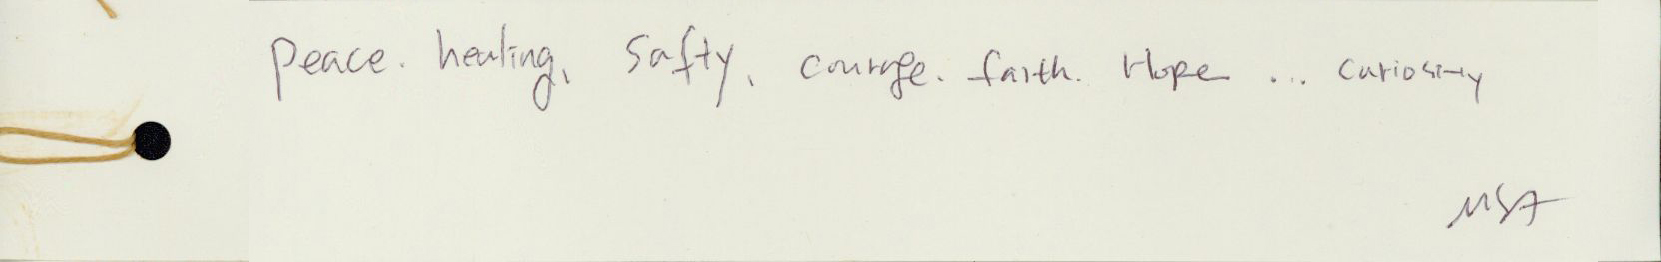 Peace. healing, Safty, courage. faith. Hope ... curiosity
MSA